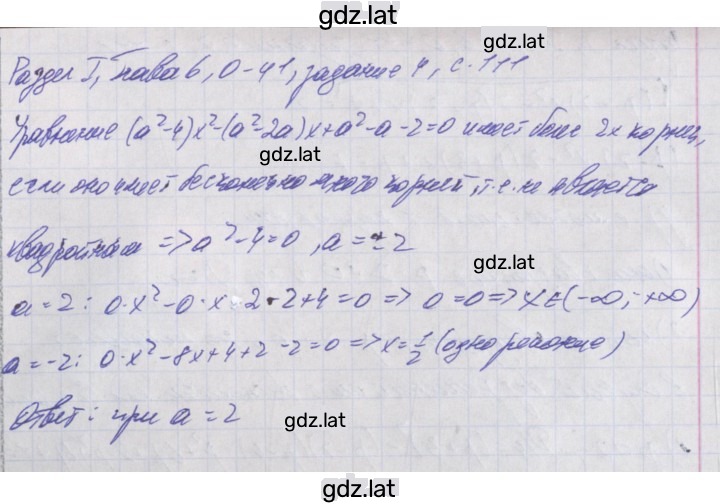 gdz.lat
Раздел I, Глава 6, О-41, задание 4, с. 111
Уравнение (a²-4)x²-(a²-2a)x+a²-a-2=0 имеет более 2х корней,
gdz.lat
если оно имеет бесконечно много корней, т.е. не является
квадратным => a²-4=0, a=±2
gdz.lat
a=2: 0·x²-0·x-2-2+4=0 => 0=0 => x∈(-∞;+∞)
a=-2: 0·x²-8x+4+2-2=0 => x=1/2 (одно решение)
gdz.lat
Ответ: при a=2
gdz.lat
gdz.lat